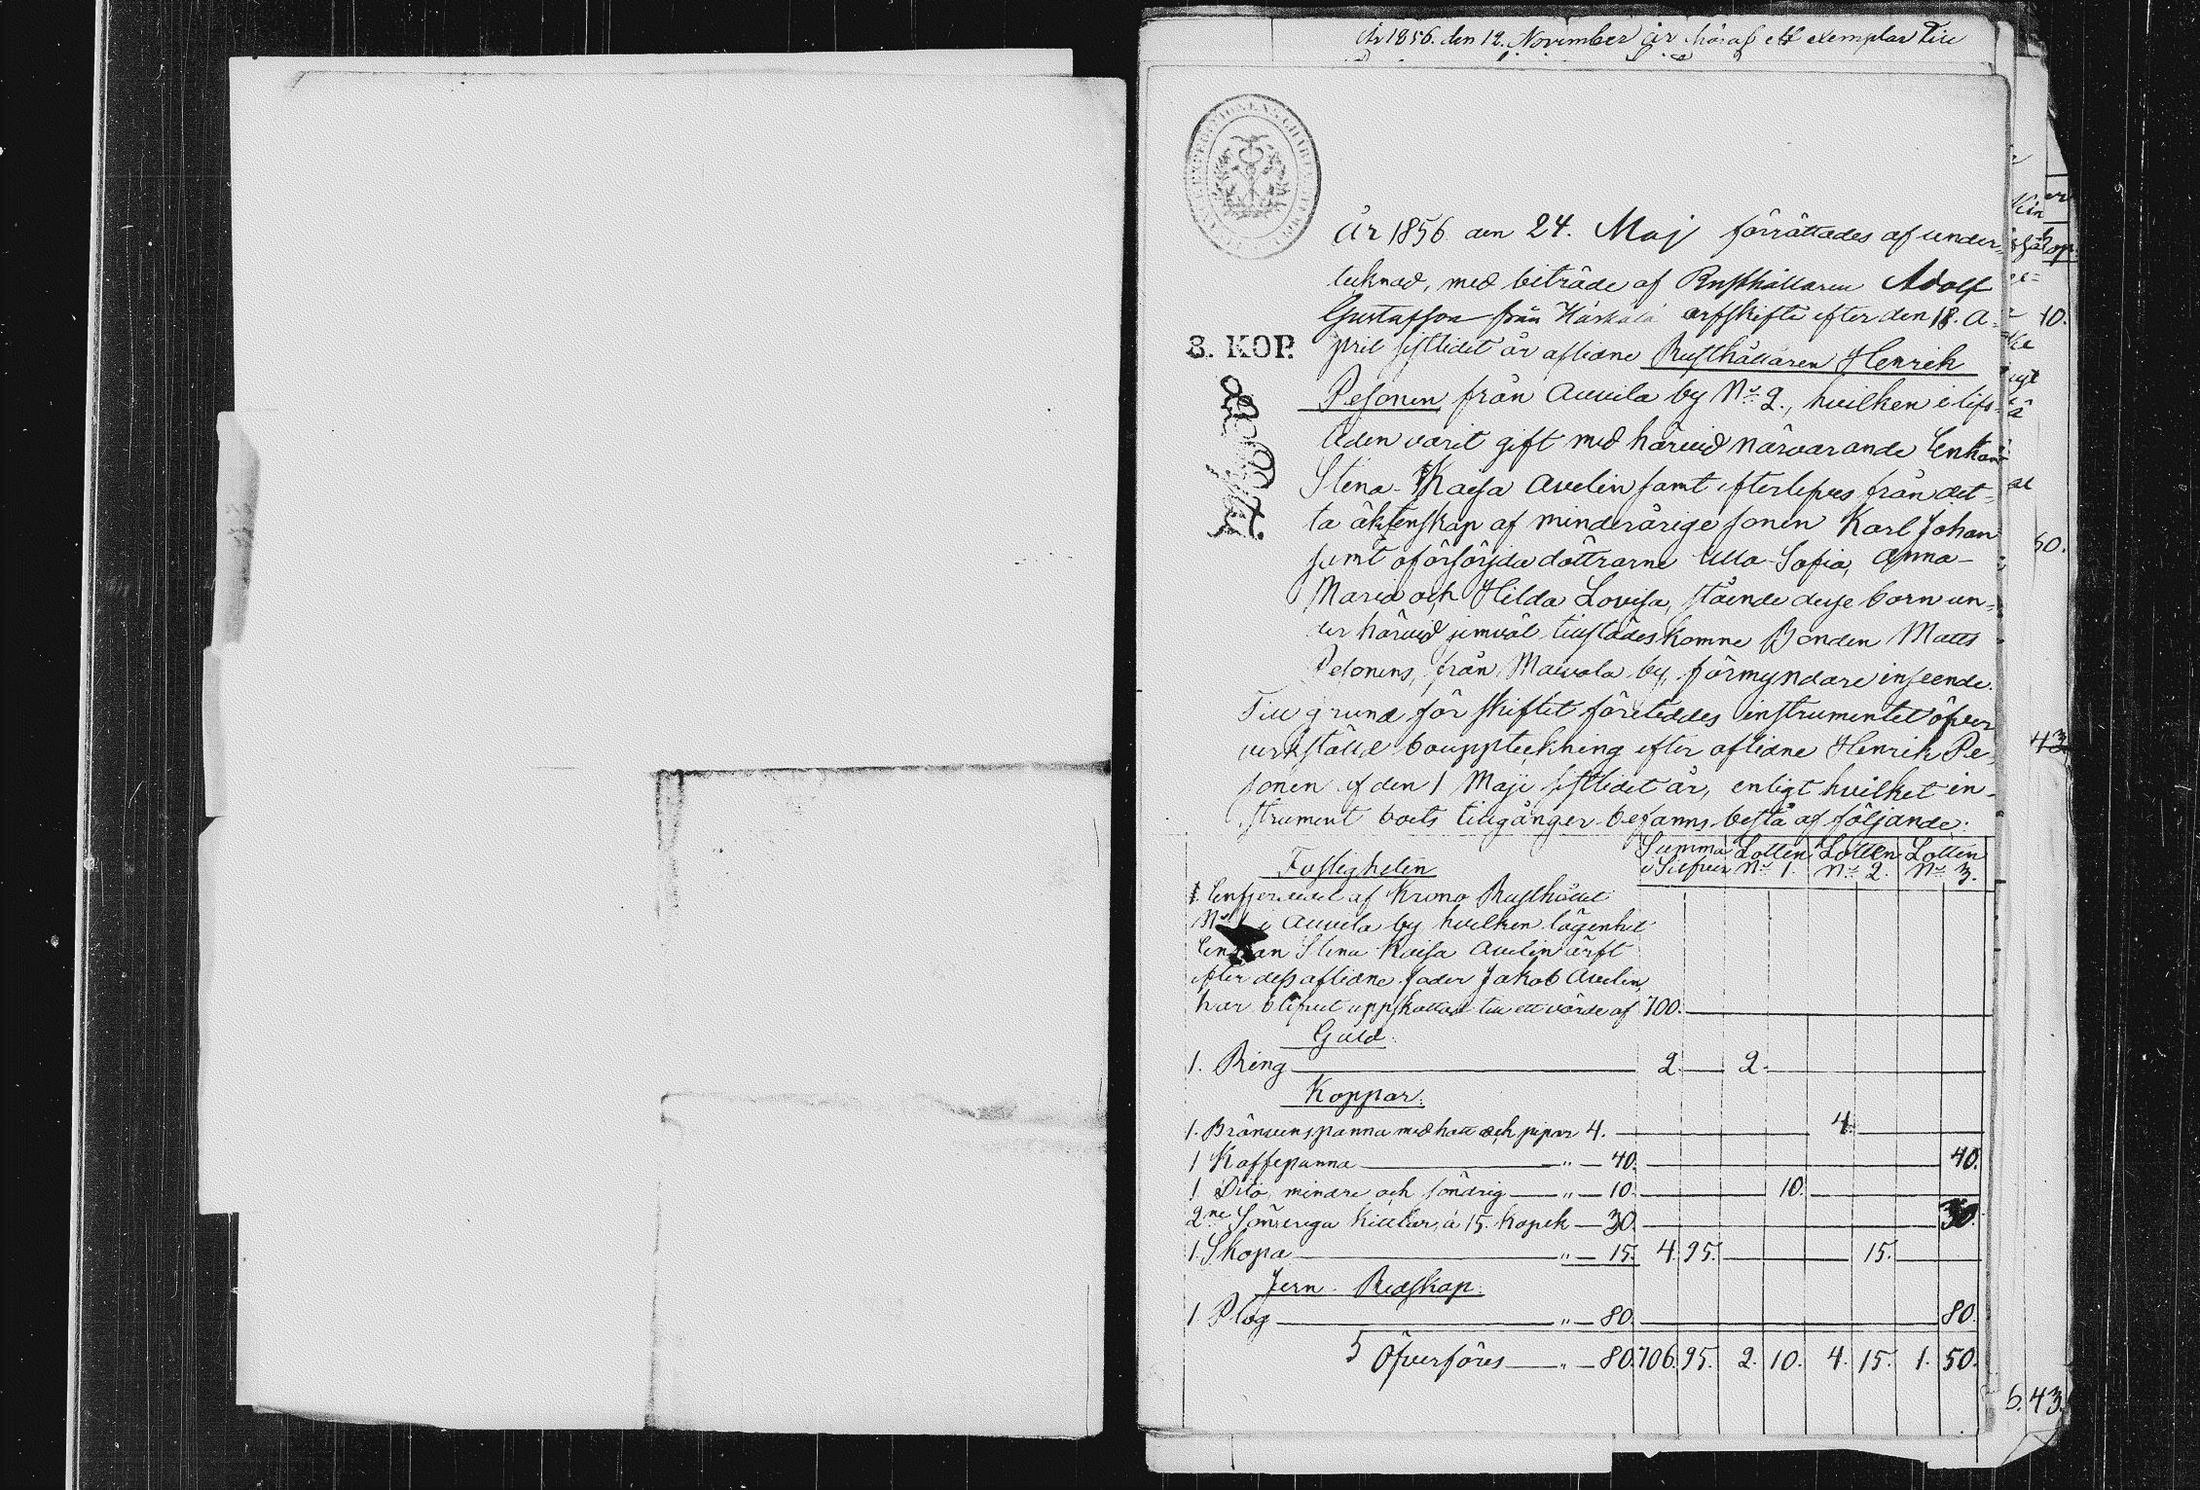 År 1856. den 12. November är häraf ett exemplar till
År 1856 den 24. Maj förrättades af under-
tecknad, med biträde af Rusthållaren Adolf
Gustafsson från Härkälä arfskifte efter den 18. A-
3. KOP.
pril sistledit år aflidne Rusthållaren Henrik
Pesonen från Auvila by No 2., hvilken i lifs-
tiden varit gift med härvid närvarande Enkan
Stina-Kaisa Avelin samt efterlefves från det-
ta äktenskap af minderårige sonen Karl Johan
samt oförsörjda döttrarne Ulla-Sofia, Anna-
Maria och Hilda Lovisa, stående desse barn un-
der härvid jemväl tillstädes komne Bonden Matts
Pesonens, från by, förmyndare inseende.
Till grund för skiftet företeddes instrumentet öfver
verkställd bouppteckning efter aflidne Henrik Pe-
sonen af den 1 Maji sistledit år, enligt hvilket in-
strument boets tillgånger befanns bestå af följande:
Fastigheten
Summa i Silfver
Lotten No 1.
Lotten No 2.
Lotten No 3.
1. Enfjerdedel af Krono Rusthållet
No i Auvila by hvilken lägenhet
Enkan Stina Kaisa Avelin ärft
efter dess aflidne fader Jakob Avelin,
har blifvit uppskattad till ett värde af 700.
Guld.
1. Ring 2. 2.
Koppar.
1. Bränvinspanna med hatt och pipor 4. 4.
1 Kaffepanna " 40. 40.
1 Dito, mindre och söndrig " 10. 10.
2ne Söndriga Kittlar, á 15. Kopek 30. 30.
1. Skopa " 15. 4. 95. 15.
Jern-Redskap.
1 Plog " 80. 80.
Öfverföres " 80. 706. 95. 2. 10. 4. 15. 1. 50.
10.
50.
43
6. 43.